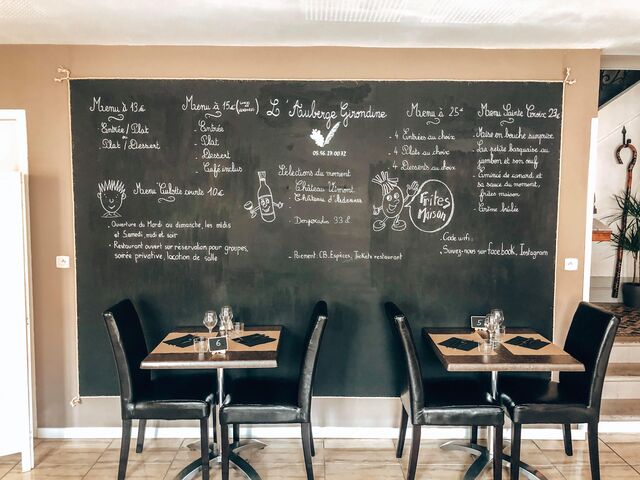 Menu à 13€
Entrée / Plat
ou
Plat / Dessert
Menu à 15€
Entrée
Plat
Dessert
Café inclus
Menu Culotte courte 10€
. Ouverture du Mardi au dimanche, les midis
et Samedi, midi et soir
. Restaurant ouvert sur réservation pour groupes,
soirée privative, location de salle
L'Auberge Girondine
05.56.27.00.72
Sélections du moment
. Château
. Château
33cl
. Paiement: CB, Espèces, Tickets restaurant
Menu à 25€
. 4 Entrées au choix
. 4 Plats au choix
. 4 Desserts au choix
Frites
Maison
Menu Sainte Croix 23€
. Mise en bouche surprise
. La petite barquaise au
jambon et son œuf
. Emincé de canard et
sa sauce du moment,
frites maison
. Crème brûlée
. Code wifi :
. Suivez-nous sur facebook, Instagram
6
5